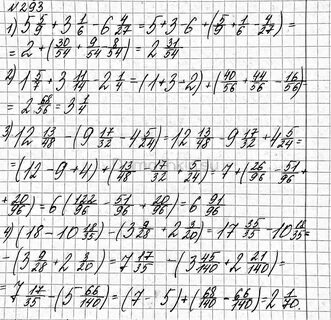 №293
1) 5 5/9 + 3 1/6 - 6 4/27 = 5+3-6 + (5/9 + 1/6 - 4/27) =
= 2 + (30/54 + 9/54 - 8/54) = 2 31/54
2) 1 5/7 + 3 11/14 - 2 1/4 = (1+3-2) + (40/56 + 44/56 - 16/56)
= 2 68/56 = 3 1/4
3) 12 13/48 - (9 17/32 - 4 5/24) = 12 13/48 - 9 17/32 + 4 5/24 =
= (12-9+4) + (13/48 - 17/32 + 5/24) = 7 + (26/96 - 51/96 +
+ 20/96) = 6 (122/96 - 51/96 + 20/96) = 6 91/96
4) (18 - 10 18/35) - (3 9/28 + 2 3/20) = 17 35/35 - 10 18/35 =
- (3 9/28 + 2 3/20) = 7 17/35 - (3 45/140 + 2 21/140) =
= 7 17/35 - (5 66/140) = (7-5) + (68/140 - 66/140) = 2 1/70